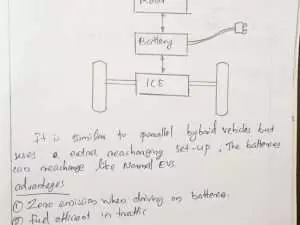 Battery
ICE
It is similar to parallel hybrid vehicles but
uses a extra recharging set-up. The batteries
can recharge like Normal EVs.
advantages
① Zero emission when driving on batteries.
② Fuel efficient in traffic